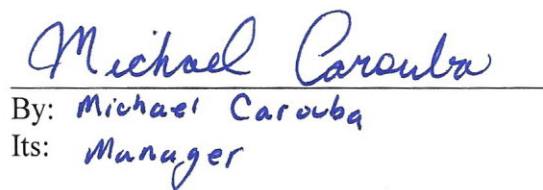 Michael Carouba
By: Michael Carouba
Its: Manager